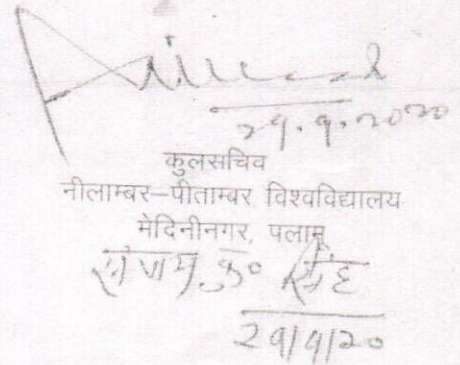 29.9.2020
कुलसचिव
नीलाम्बर–पीताम्बर विश्वविद्यालय
मेदिनीनगर, पलामू
कु० सिंह
29/9/20